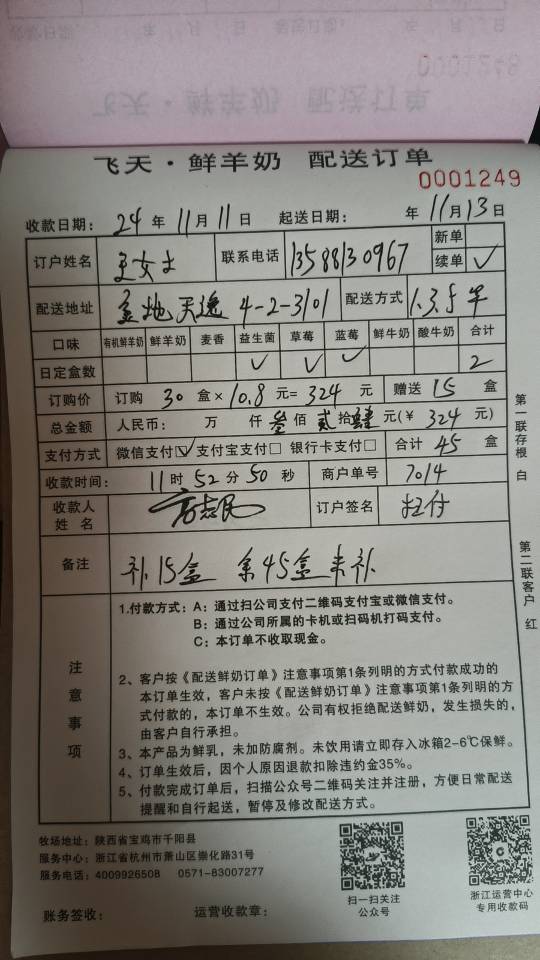 0001248
飞天·鲜羊奶 配送订单
飞天·鲜羊奶 配送订单
0001249
收款日期: 24 年 11 月 11 日 起送日期: 年 11 月 13 日
订户姓名 王女士 联系电话 13588130967 新单
续单 ✓
配送地址 金地天逸 4-2-3101 配送方式 1.3.5 半
口味 有机鲜羊奶 鲜羊奶 麦香 益生菌 草莓 蓝莓 鲜牛奶 酸牛奶 合计
日定盒数 ✓ ✓ ✓ 2
订购价 订购 30 盒×10.8 元=324 元 赠送 15 盒
总金额 人民币: 万 仟 叁 佰 贰 拾 肆 元(¥ 324 元)
支付方式 微信支付☑ 支付宝支付□ 银行卡支付□ 合计 45 盒
收款时间: 11 时 52 分 50 秒 商户单号 7014
收款人姓名 订户签名 扫付
备注 补15盒 余45盒未补
注意事项
1.付款方式: A: 通过扫公司支付二维码支付宝或微信支付。
B: 通过公司所属的卡机或扫码机打码支付。
C: 本订单不收取现金。
2、客户按《配送鲜奶订单》注意事项第1条列明的方式付款成功的
本订单生效，客户未按《配送鲜奶订单》注意事项第1条列明的方
式付款的，本订单不生效。公司有权拒绝配送鲜奶，发生损失的，
由客户自行承担。
3、本产品为鲜乳，未加防腐剂。未饮用请立即存入冰箱2-6℃保鲜。
4、订单生效后，因个人原因退款扣除违约金35%。
5、付款完成订单后，扫描公众号二维码关注并注册，方便日常配送
提醒和自行起送，暂停及修改配送方式。
第一联存根 白
第二联客户 红
牧场地址: 陕西省宝鸡市千阳县
服务中心: 浙江省杭州市萧山区崇化路31号
服务电话: 4009926508 0571-83007277
扫一扫关注
公众号
浙江运营中心
专用收款码
账务签收: 运营收款章: